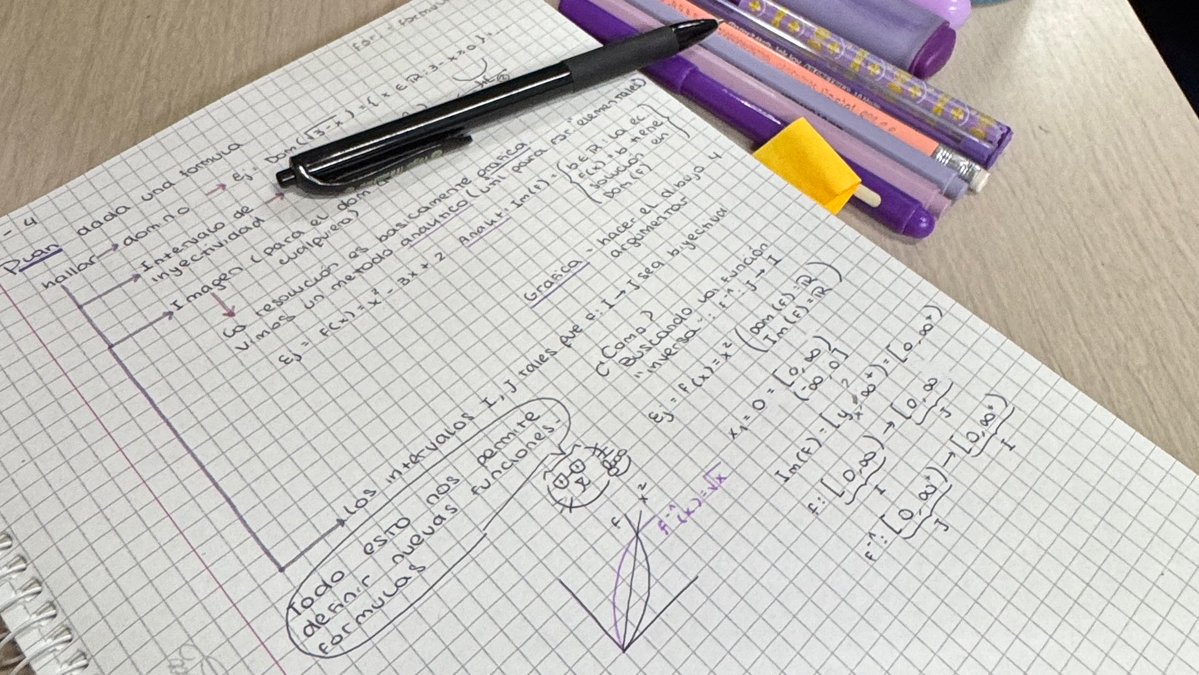 - 4
Plan dada una formula
hallar → dominio → Ej: Dom(√3-x) = {x ∈ ℝ: 3-x≥0} =
→ Intervalo de
inyectividad →
→ Imagen (para el dom
cualquiera)
La resolución es basicamente grafica
Vimos un metodo analitico (uni para nor "elementales)
Analit: Im(f) = {b ∈ ℝ: la ec
f(x) = b tiene
solución en
Dom(f)}
Ej = f(x) = x² - 3x + 2
Grafica = hacer el dibujo y
argumentar
→ Los intervalos I, J tales que f: I → J sea biyectiva
(Como?
Buscando una función
"inversa": f⁻¹ J → I
Todo esto nos permite
definir nuevas funciones.
formulas
Ej = f(x) = x² (Dom(f) = ℝ
Im(f) = ℝ)
x₁ = 0 = [0, ∞)
(-∞, 0]
Im(f) = [y, ∞⁺) = [0, ∞⁺)
f: [0, ∞) → [0, ∞
I J
f⁻¹: [0, ∞⁺) → [0, ∞⁺)
J I
f x²
f⁻¹(x) = √x